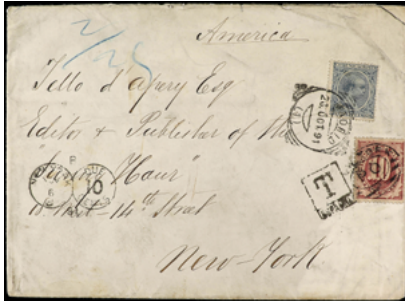 America
Tello d'Apery Esq
Editor & Publisher of the
"Sunny Hour"
18 West - 14th Street
New-York
T
DUE
10
CENTS